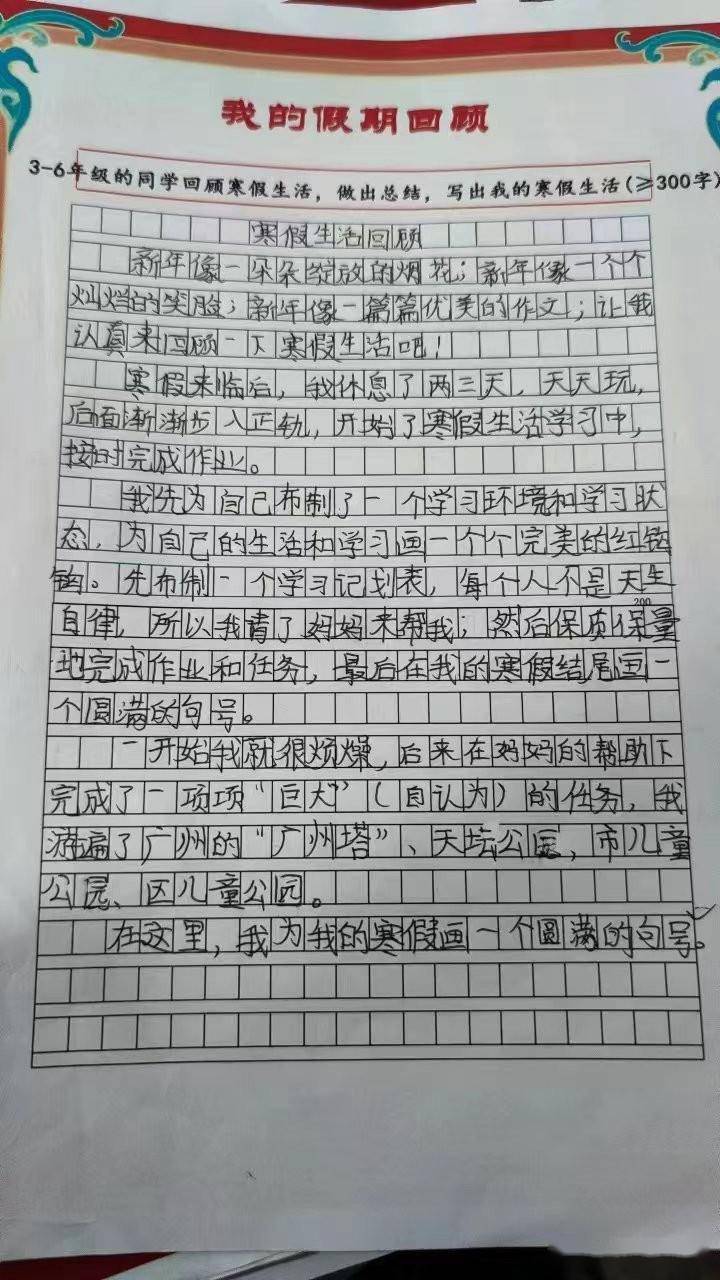 我的假期回顾
3-6年级的同学回顾寒假生活，做出总结，写出我的寒假生活(≥300字)
寒假生活回顾
新年像一朵朵绽放的烟花；新年像一个个
灿烂的笑脸；新年像一篇篇优美的作文；让我
认真来回顾一下寒假生活吧！
寒假来临后，我休息了两三天，天天玩，
后面渐渐步入正轨，开始了寒假生活学习中，
按时完成作业。
我先为自己布制了一个学习环境和学习状
态，为自己的生活和学习画一个个完美的红钩
钩。先布制一个学习记划表，每个人不是天生
200
自律，所以我请了妈妈来帮我；然后保质保量
地完成作业和任务，最后在我的寒假结尾画一
个圆满的句号。
一开始我就很烦燥，后来在妈妈的帮助下
完成了一项项“巨大”（自认为）的任务，我
游遍了广州的“广州塔”、天坛公园，市儿童
公园、区儿童公园。
在这里，我为我的寒假画一个圆满的句号。